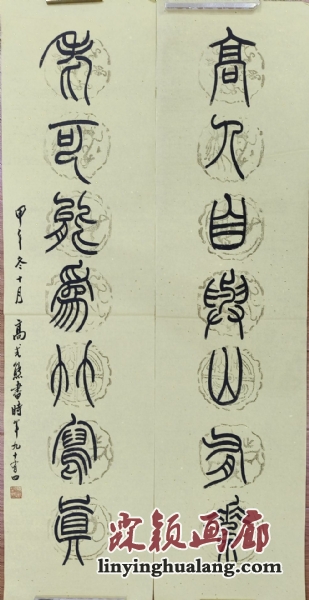 高人自與山有素
老可能為竹寫真
甲午冬十月 高式熊書時年九十有四
霖颖画廊
linyinghualang.com